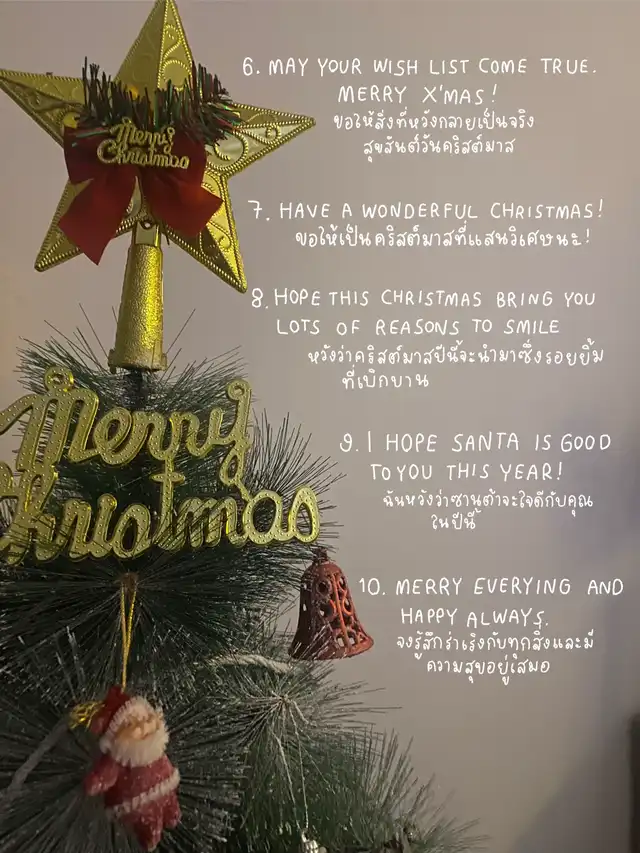 Merry
Christmas
6. MAY YOUR WISH LIST COME TRUE.
MERRY X'MAS!
ขอให้สิ่งที่หวังกลายเป็นจริง
สุขสันต์วันคริสต์มาส
7. HAVE A WONDERFUL CHRISTMAS!
ขอให้เป็นคริสต์มาสที่แสนวิเศษนะ!
8. HOPE THIS CHRISTMAS BRING YOU
LOTS OF REASONS TO SMILE
หวังว่าคริสต์มาสปีนี้จะนำมาซึ่งรอยยิ้ม
ที่เบิกบาน
Merry
Christmas
9. I HOPE SANTA IS GOOD
TO YOU THIS YEAR!
ฉันหวังว่าซานต้าจะใจดีกับคุณ
ในปีนี้
10. MERRY EVERYING AND
HAPPY ALWAYS.
จงรู้สึกร่าเริงกับทุกสิ่งและมี
ความสุขอยู่เสมอ